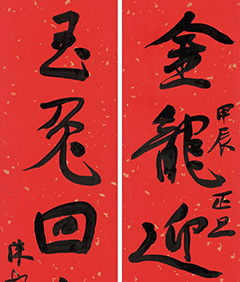 金龍迎
甲辰 正旦
玉兔回
陳